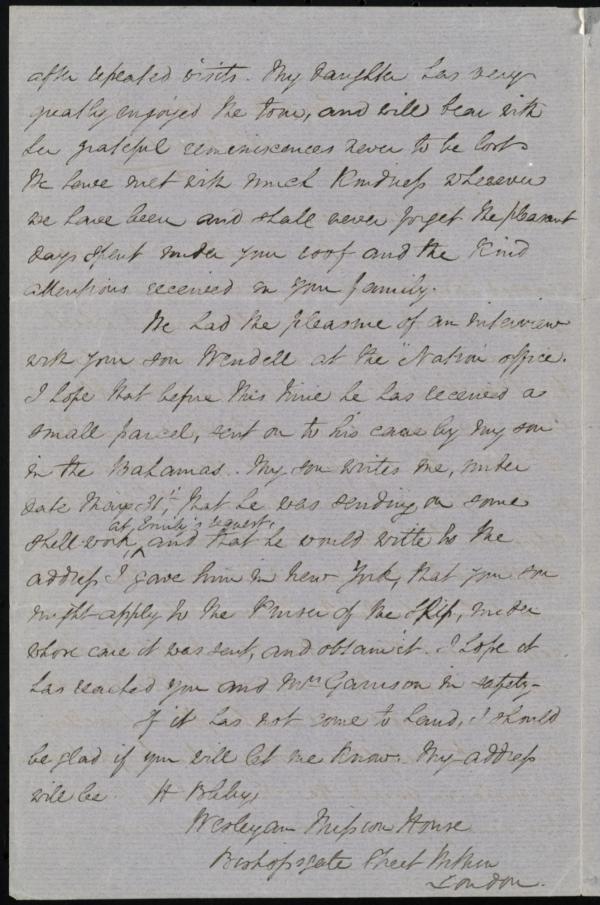 after repeated visits. My daughter has very
greatly enjoyed the tour, and will bear with
her grateful reminiscences never to be lost
We have met with much kindness wherever
we have been and shall never forget the pleasant
days spent under your roof and the kind
attentions received in your family.
We had the pleasure of an interview
with your son Wendell at the "Nation office.
I hope that before this time he has received a
small parcel, sent on to his care by my son
in the Bahamas. My son writes me, under
date May 31st, that he was sending on some
at Emily's request,
shell-work, and that he would write to the
address I gave him in New York, that your son
might apply to the Purser of the Ship, under
whose care it was sent, and obtain it. I hope it
has reached you and Mrs Garrison in safety-
If it has not come to hand, I should
be glad if you will let me know. My address
will be H Bleby,
Wesleyan Mission House
Bishopsgate Street Within
London.